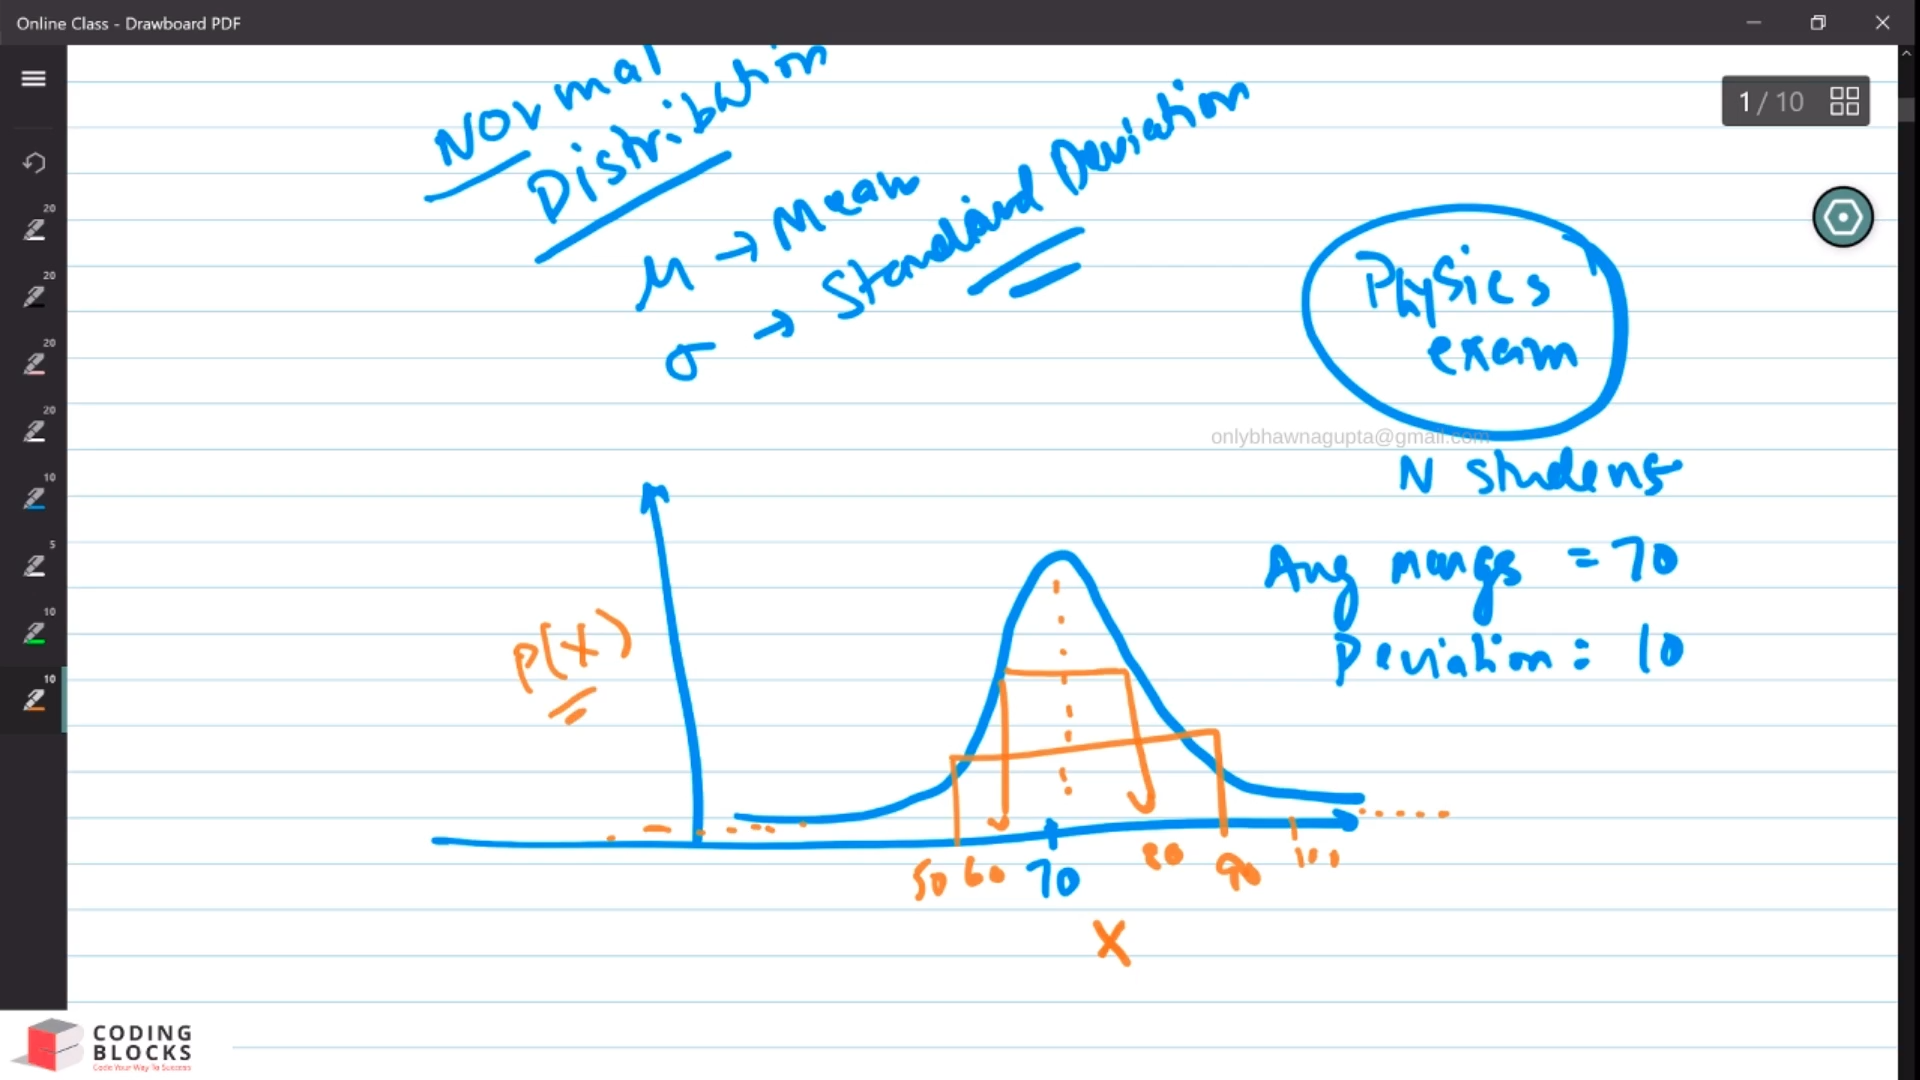 Online Class - Drawboard PDF
1 / 10
Normal
Distribution
μ → Mean
σ → Standard Deviation
Physics
exam
onlybhawnagupta@gmail.com
N students
Avg marks = 70
Deviation = 10
P(X)
50 60 70 80 90 100
X
20
20
20
20
10
5
10
10
CODING
BLOCKS
Code Your Way To Success